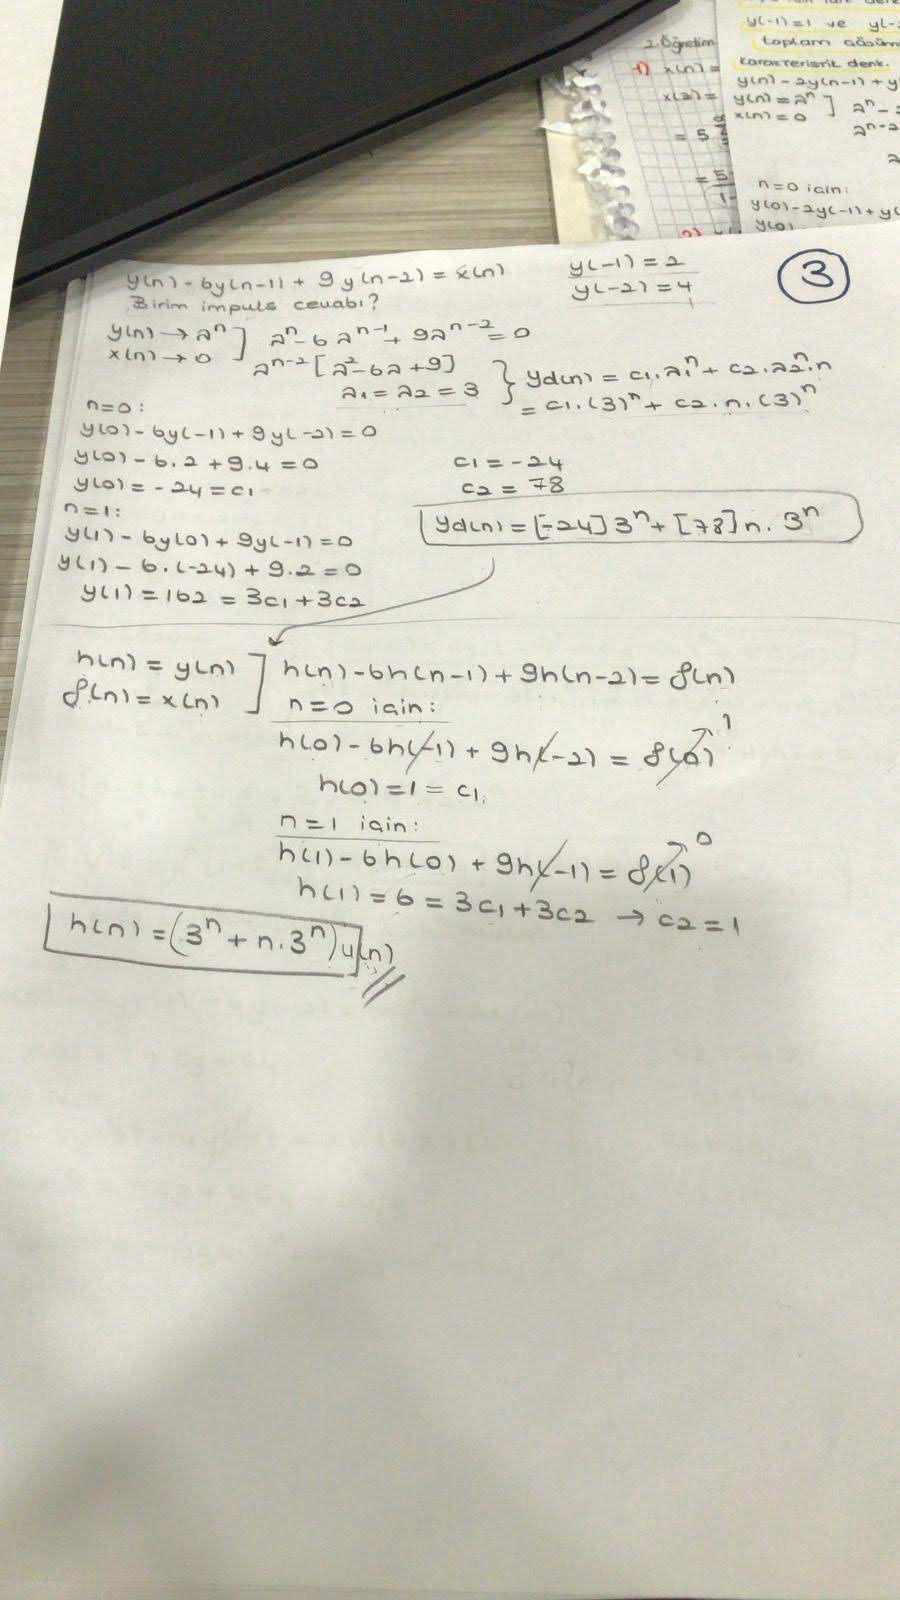 2. Öğretim
1) x(n) =
x(2) =
= 5
= 5
1-
2)
y(-1)=1 ve y(-
toplam çözüm
karakteristik denk.
y(n) - 2y(n-1) + y
y(n) = aⁿ ] aⁿ -
x(n) = 0
aⁿ⁻²
a
n=0 için:
y(0) - 2y(-1) + y(
y(0)
y(n) - 6y(n-1) + 9y(n-2) = x(n) y(-1) = 2
Birim impuls cevabı? y(-2) = 4
3
y(n) → aⁿ ] aⁿ - 6aⁿ⁻¹ + 9aⁿ⁻² = 0
x(n) → 0 aⁿ⁻² [a² - 6a + 9] } yd(n) = c1.a1ⁿ + c2.a2ⁿ.n
a1 = a2 = 3 = c1.(3)ⁿ + c2.n.(3)ⁿ
n=0:
y(0) - 6y(-1) + 9y(-2) = 0
y(0) - 6.2 + 9.4 = 0 c1 = -24
y(0) = -24 = c1 c2 = 78
n=1: yd(n) = [-24]3ⁿ + [78]n.3ⁿ
y(1) - 6y(0) + 9y(-1) = 0
y(1) - 6.(-24) + 9.2 = 0
y(1) = 162 = 3c1 + 3c2
h(n) = y(n) ] h(n) - 6h(n-1) + 9h(n-2) = δ(n)
δ(n) = x(n) n=0 için:
h(0) - 6h(-1) + 9h(-2) = δ(0) 1
h(0) = 1 = c1
n=1 için:
h(1) - 6h(0) + 9h(-1) = δ(1) 0
h(1) = 6 = 3c1 + 3c2 → c2 = 1
h(n) = (3ⁿ + n.3ⁿ) u(n)